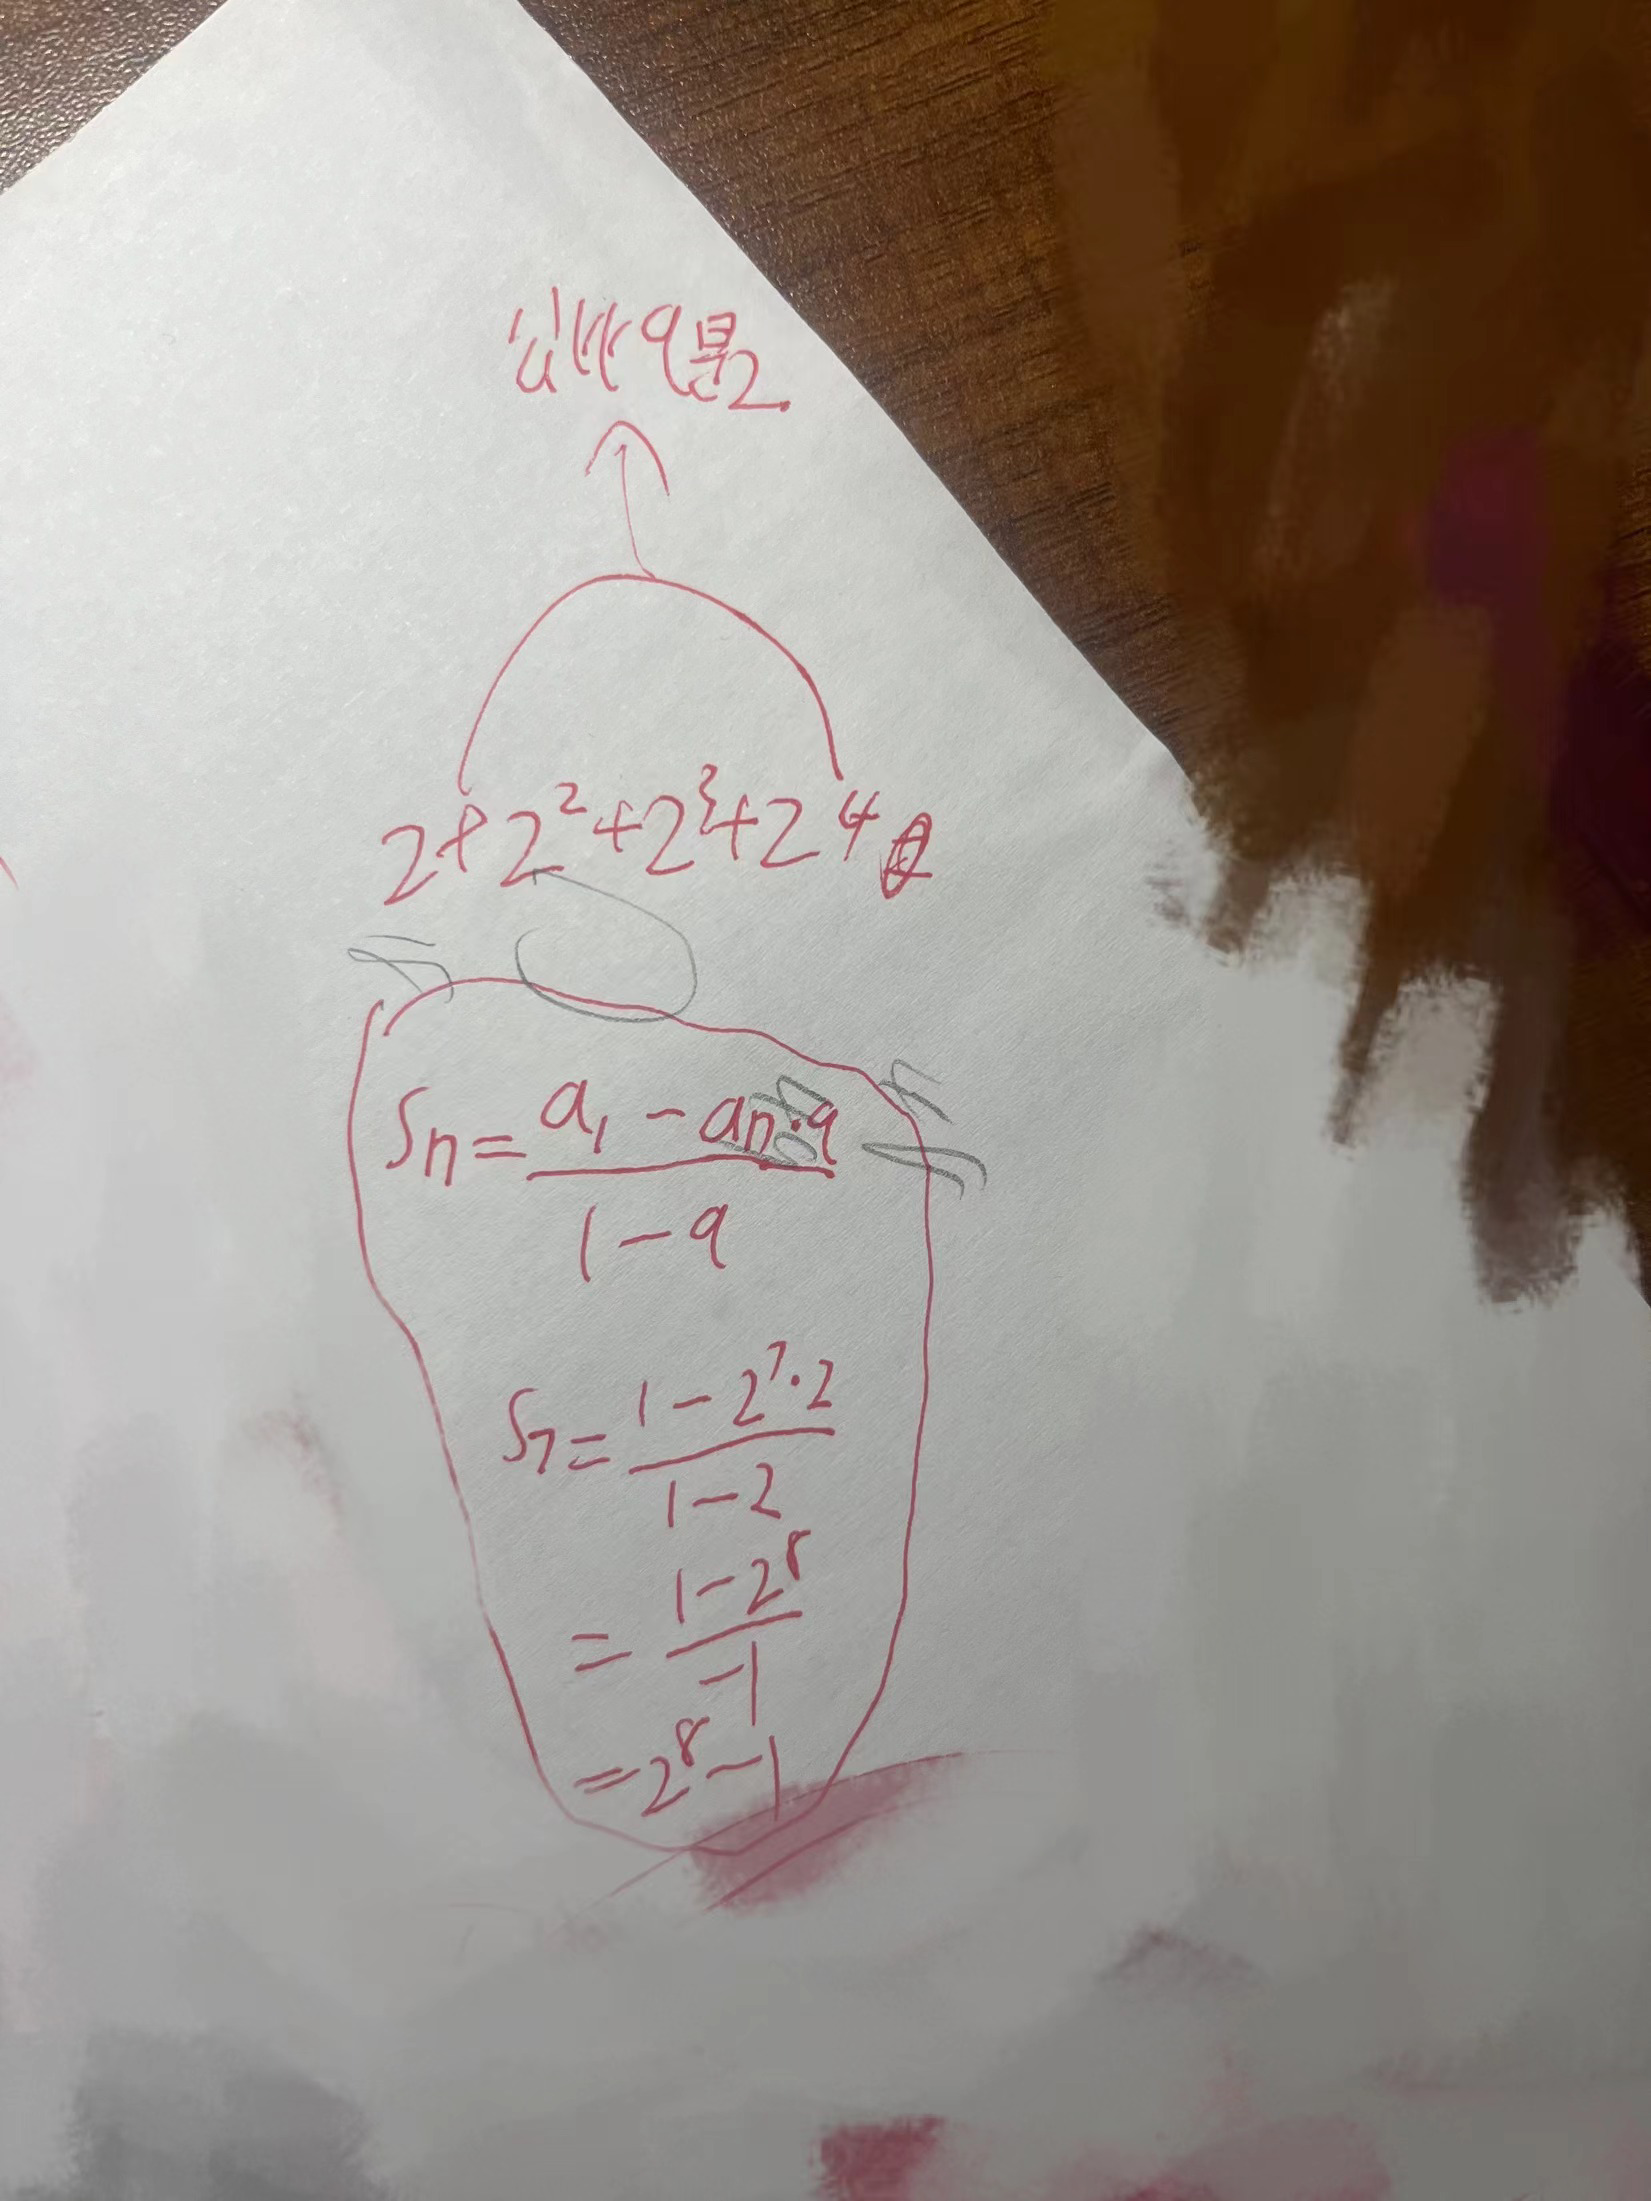 公比q是2
2+2²+2³+2⁴
Sn=a₁-an·q/1-q
S₇=1-2⁷·2/1-2
=1-2⁸/-1
=2⁸-1